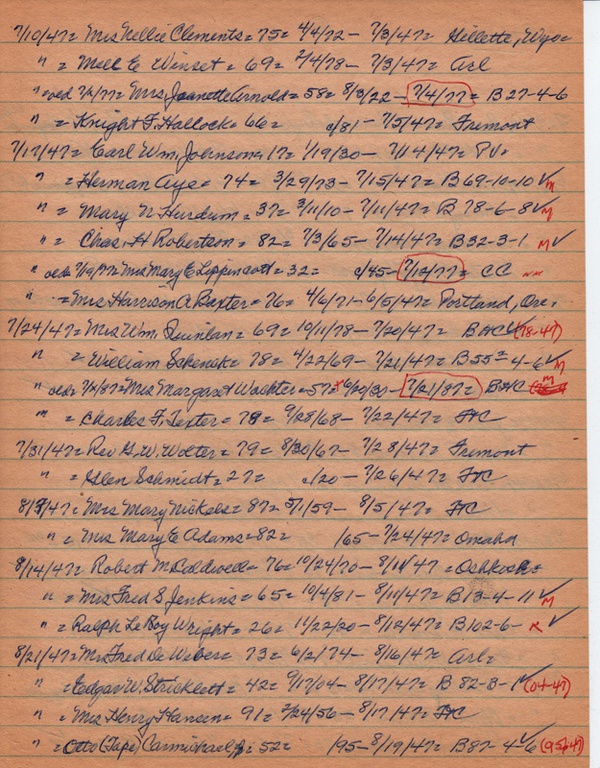 7/10/47= Mrs Nellie Clements = 75= 4/4/72 – 7/3/47= Gillette, Wyo=
" = Mell E Winset = 69= 2/4/78 – 7/3/47= Arl
" = 58= 8/3/22 – 7/4/77= B 27-4-6
" = Knight F. Hallock= 66= c/81 – 7/5/47= Fremont
7/17/47= Earl Wm. Johnson= 17= 1/19/30 – 7/14/47= PV=
" = Herman Aye= 74= 3/29/73 – 7/15/47= B 69-10-10 ✓ M
" = Mary N Hurdum = 37= 3/11/10 – 7/11/47= B 78-6-8 ✓ M
" = Chas. H Robertson = 82= 7/3/65 – 7/14/47= B 32-3-1 M ✓
" Mrs Mary E Lippincott = 32= c/45 – 7/12/77= CC
" = Mrs Harrison A Baxter = 76= 4/6/71 – 6/5/47= Portland, Ore=
7/24/47= Mrs Wm. Quinlan= 69= 10/11/78 – 7/20/47= (78-47)
" = William Schenck= 78= 4/22/69 – 7/21/47= B 55² 4-6 ✓ M
" Mrs Margaret Wachter = 57= – 7/21/87= M
" = Charles F. Texter = 78= 9/28/68 – 7/22/47= HC
7/31/47= Rev G. W. Wolter= 79= 8/30/67 – 7/28/47= Fremont
" = Glen Schmidt= 27= c/20 – 7/26/47= HC
Mrs Mary Nickels= 87= 5/1/59 – 8/5/47= HC
" = Mrs Mary E Adams= 82= /65 – 7/24/47= Omaha
8/14/47= Robert M Caldwell= 76= 10/24/70 – 8/11/47 = Oshkosh=
" = Mrs Fred S Jenkins= 65= 10/4/81 – 8/11/47= B 13-4-11 ✓ M
" = Ralph LeRoy Wright = 26= 11/22/20 – 8/12/47= B 102-6- ✓
8/21/47= Mrs Fred De Weber= 73= 6/2/74 – 8/16/47= Arl=
" = Edgar W. Stricklett = 42= 9/17/04 – 8/17/47= B 82-3-1 ✓ (04-47)
" = Mrs Henry Hansen= 91= 2/24/56 – 8/17/47= HC
" = Otto (Tape) Carmichael = 52= /95 – 8/19/47= B 87-4-6 ✓ (95-47)